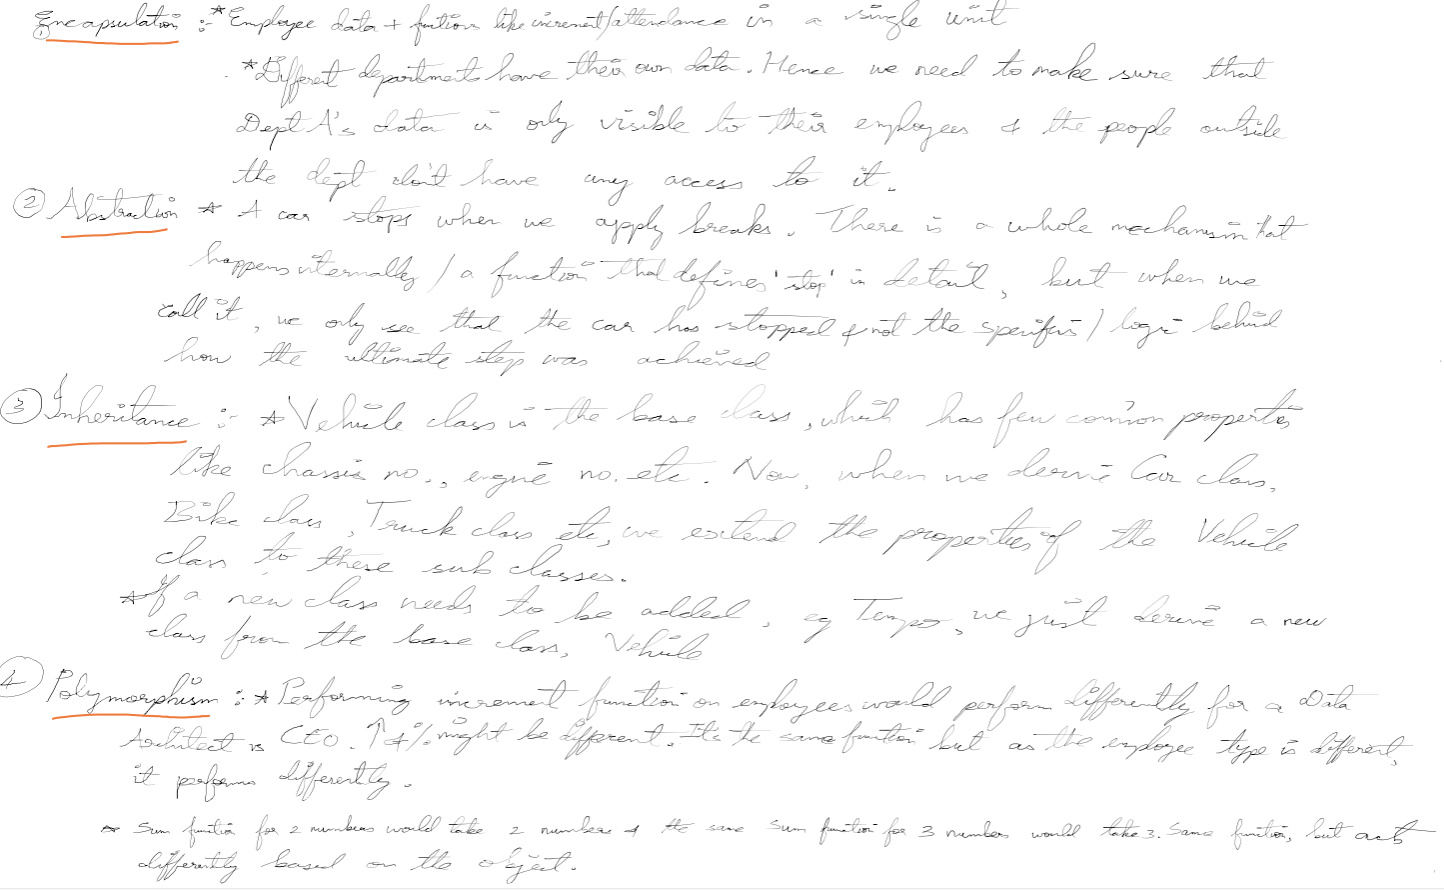 ① Encapsulation :- * Employee data + functions like increment/attendance in a single unit
* Different departments have their own data. Hence we need to make sure that
Dept A's data is only visible to their employees & the people outside
the dept don't have any access to it.
② Abstraction * A car stops when we apply breaks. There is a whole mechanism that
happens internally / a function that defines 'stop' in detail, but when we
call it, we only see that the car has stopped & not the specifics / logic behind
how the ultimate step was achieved
③ Inheritance :- * Vehicle class is the base class, which has few common properties
like chassis no., engine no. etc. Now, when we derive Car class,
Bike class, Truck class etc, we extend the properties of the Vehicle
class to these sub classes.
* If a new class needs to be added, eg Tempo, we just derive a new
class from the base class, Vehicle
④ Polymorphism :- * Performing increment function on employees would perform differently for a Data
Architect vs CEO. ↑ % might be different. It's the same function but as the employee type is different,
it performs differently.
* Sum function for 2 numbers would take 2 numbers & the same sum function for 3 numbers would take 3. Same function, but acts
differently based on the object.